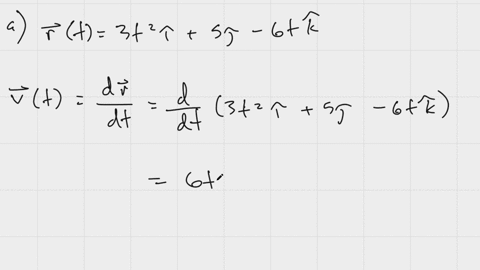 a) r⃗(t) = 3t² î + 5ĵ - 6t k̂
v⃗(t) = dr⃗/dt = d/dt (3t² î + 5ĵ - 6t k̂)
= 6t